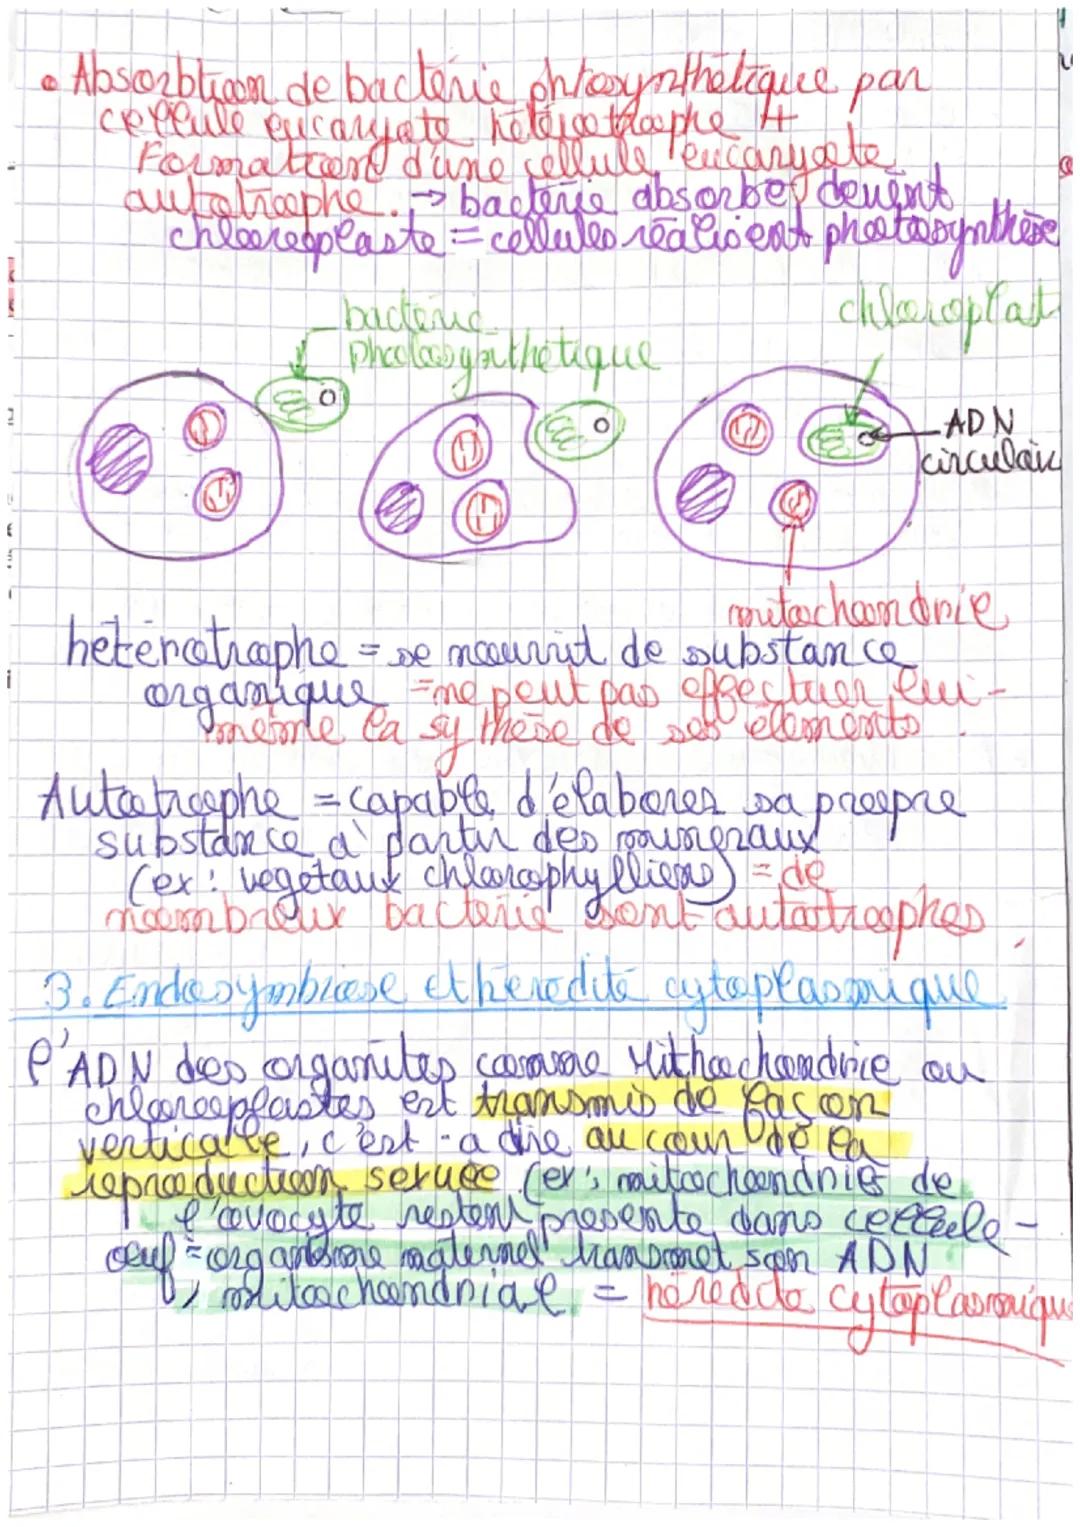 • Absorbtion de bactérie phtosynthétique par
cellule eucaryote hétérotrophe +
Formation d'une cellule eucaryote
autotrophe. → bactérie absorbé devient
chloroplaste = cellules réalisent photosynthèse
bactérie
photosynthétique
chloroplast
ADN
circulair
mitochondrie
hétérotrophe = se nourrit de substance
organique = ne peut pas effectuer lui-
même la sythèse de ses élements.
Autotrophe = capable d'élaborer sa propre
substance à partir des mineraux
(ex: vegetaux chlorophylliens) = de
nombreux bactérie sont autotrophes
3. Endosymbiose et hérédité cytoplasmique
l'ADN des organites comme Mithochondrie ou
chloroplastes est transmis de façon
verticale, c'est-a dire au cour de la
reproduction sexuée (ex: mitochondries de
l'ovocyte restent présente dans cellule-
oeuf = organisme maternel transmet son ADN
mitochondrial = héredité cytoplasmique